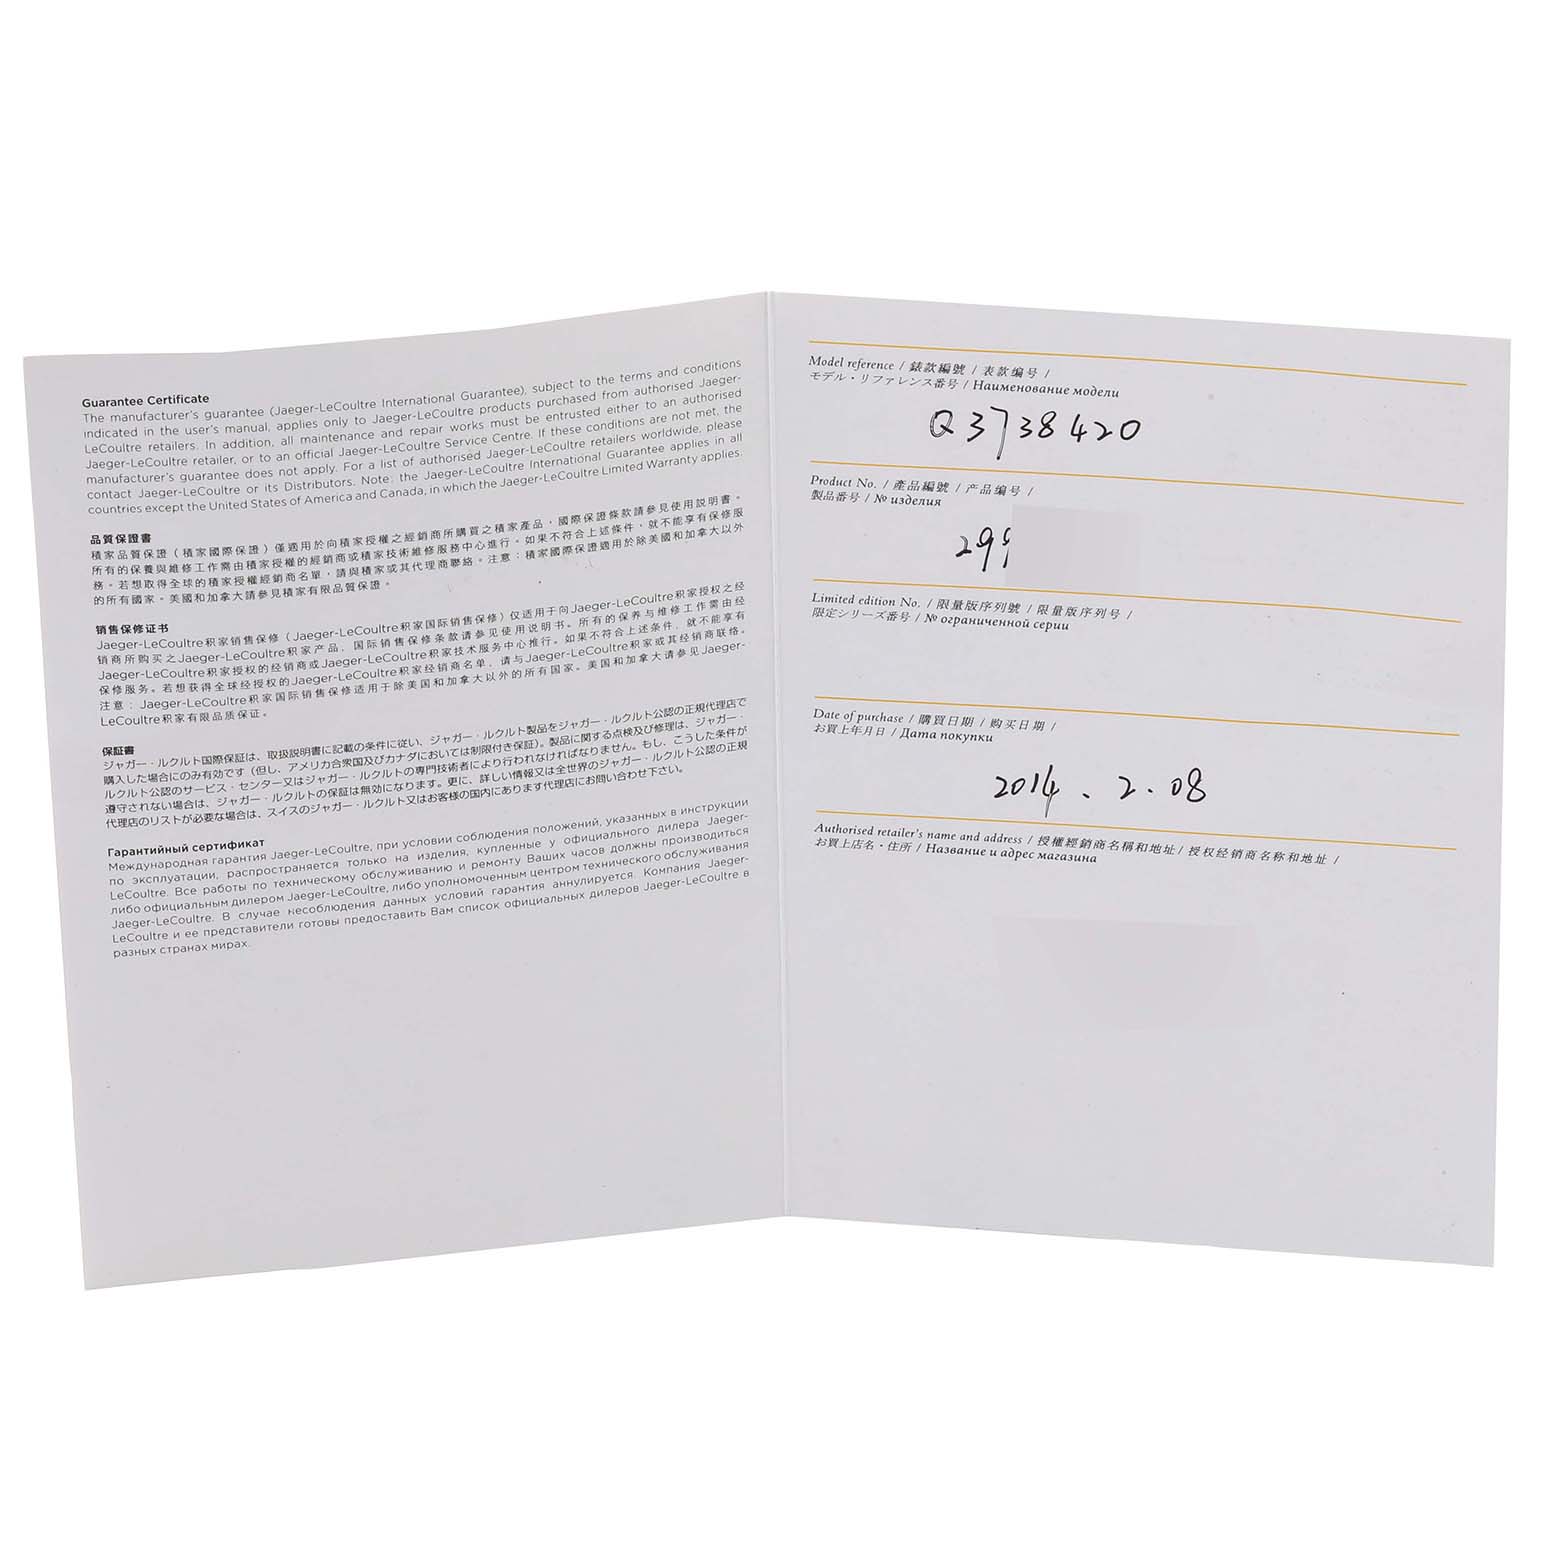 Guarantee Certificate
The manufacturer's guarantee (Jaeger-LeCoultre International Guarantee), subject to the terms and conditions
indicated in the user's manual, applies only to Jaeger-LeCoultre products purchased from authorised Jaeger-
LeCoultre retailers. In addition, all maintenance and repair works must be entrusted either to an authorised
Jaeger-LeCoultre retailer, or to an official Jaeger-LeCoultre Service Centre. If these conditions are not met, the
manufacturer's guarantee does not apply. For a list of authorised Jaeger-LeCoultre retailers worldwide, please
contact Jaeger-LeCoultre or its Distributors. Note: the Jaeger-LeCoultre International Guarantee applies in all
countries except the United States of America and Canada, in which the Jaeger-LeCoultre Limited Warranty applies.
品質保證書
積家品質保證（積家國際保證）僅適用於向積家授權之經銷商所購買之積家產品，國際保證條款請參見使用説明書。
所有的保養與維修工作需由積家授權的經銷商或積家技術維修服務中心進行。如果不符合上述條件，就不能享有保修服
務。若想取得全球的積家授權經銷商名單，請與積家或其代理商聯絡。注意：積家國際保證適用於除美國和加拿大以外
的所有國家。美國和加拿大請參見積家有限品質保證。
销售保修证书
Jaeger-LeCoultre积家销售保修（Jaeger-LeCoultre积家国际销售保修）仅适用于向Jaeger-LeCoultre积家授权之经
销商所购买之Jaeger-LeCoultre积家产品，国际销售保修条款请参见使用说明书。所有的保养与维修工作需由经
Jaeger-LeCoultre积家授权的经销商或Jaeger-LeCoultre积家技术服务中心推行。如果不符合上述条件，就不能享有
保修服务。若想获得全球经授权的Jaeger-LeCoultre积家经销商名单，请与Jaeger-LeCoultre积家或其经销商联络。
注意：Jaeger-LeCoultre积家国际销售保修适用于除美国和加拿大以外的所有国家。美国和加拿大请参见Jaeger-
LeCoultre积家有限品质保证。
保証書
ジャガー・ルクルト国際保証は、取扱説明書に記載の条件に従い、ジャガー・ルクルト製品をジャガー・ルクルト公認の正規代理店で
購入した場合にのみ有効です（但し、アメリカ合衆国及びカナダにおいては制限付き保証）。製品に関する点検及び修理は、ジャガー・
ルクルト公認のサービス・センター又はジャガー・ルクルトの専門技術者により行われなければなりません。もし、こうした条件が
遵守されない場合は、ジャガー・ルクルトの保証は無効になります。更に、詳しい情報又は全世界のジャガー・ルクルト公認の正規
代理店のリストが必要な場合は、スイスのジャガー・ルクルト又はお客様の国内にあります代理店にお問い合わせ下さい。
Гарантийный сертификат
Международная гарантия Jaeger-LeCoultre, при условии соблюдения положений, указанных в инструкции
по эксплуатации, распространяется только на изделия, купленные у официального дилера Jaeger-
LeCoultre. Все работы по техническому обслуживанию и ремонту Ваших часов должны производиться
либо официальным дилером Jaeger-LeCoultre, либо уполномоченным центром технического обслуживания
Jaeger-LeCoultre. В случае несоблюдения данных условий гарантия аннулируется. Компания Jaeger-
LeCoultre и ее представители готовы предоставить Вам список официальных дилеров Jaeger-LeCoultre в
разных странах мирах.
Model reference / 錶款編號 / 表款编号 /
モデル・リファレンス番号 / Наименование модели
Q3738420
Product No. / 產品編號 / 产品编号 /
製品番号 / № изделия
299
Limited edition No. / 限量版序列號 / 限量版序列号 /
限定シリーズ番号 / № ограниченной серии
Date of purchase / 購買日期 / 购买日期 /
お買上年月日 / Дата покупки
2014 . 2 . 08
Authorised retailer's name and address / 授權經銷商名稱和地址 / 授权经销商名称和地址 /
お買上店名・住所 / Название и адрес магазина